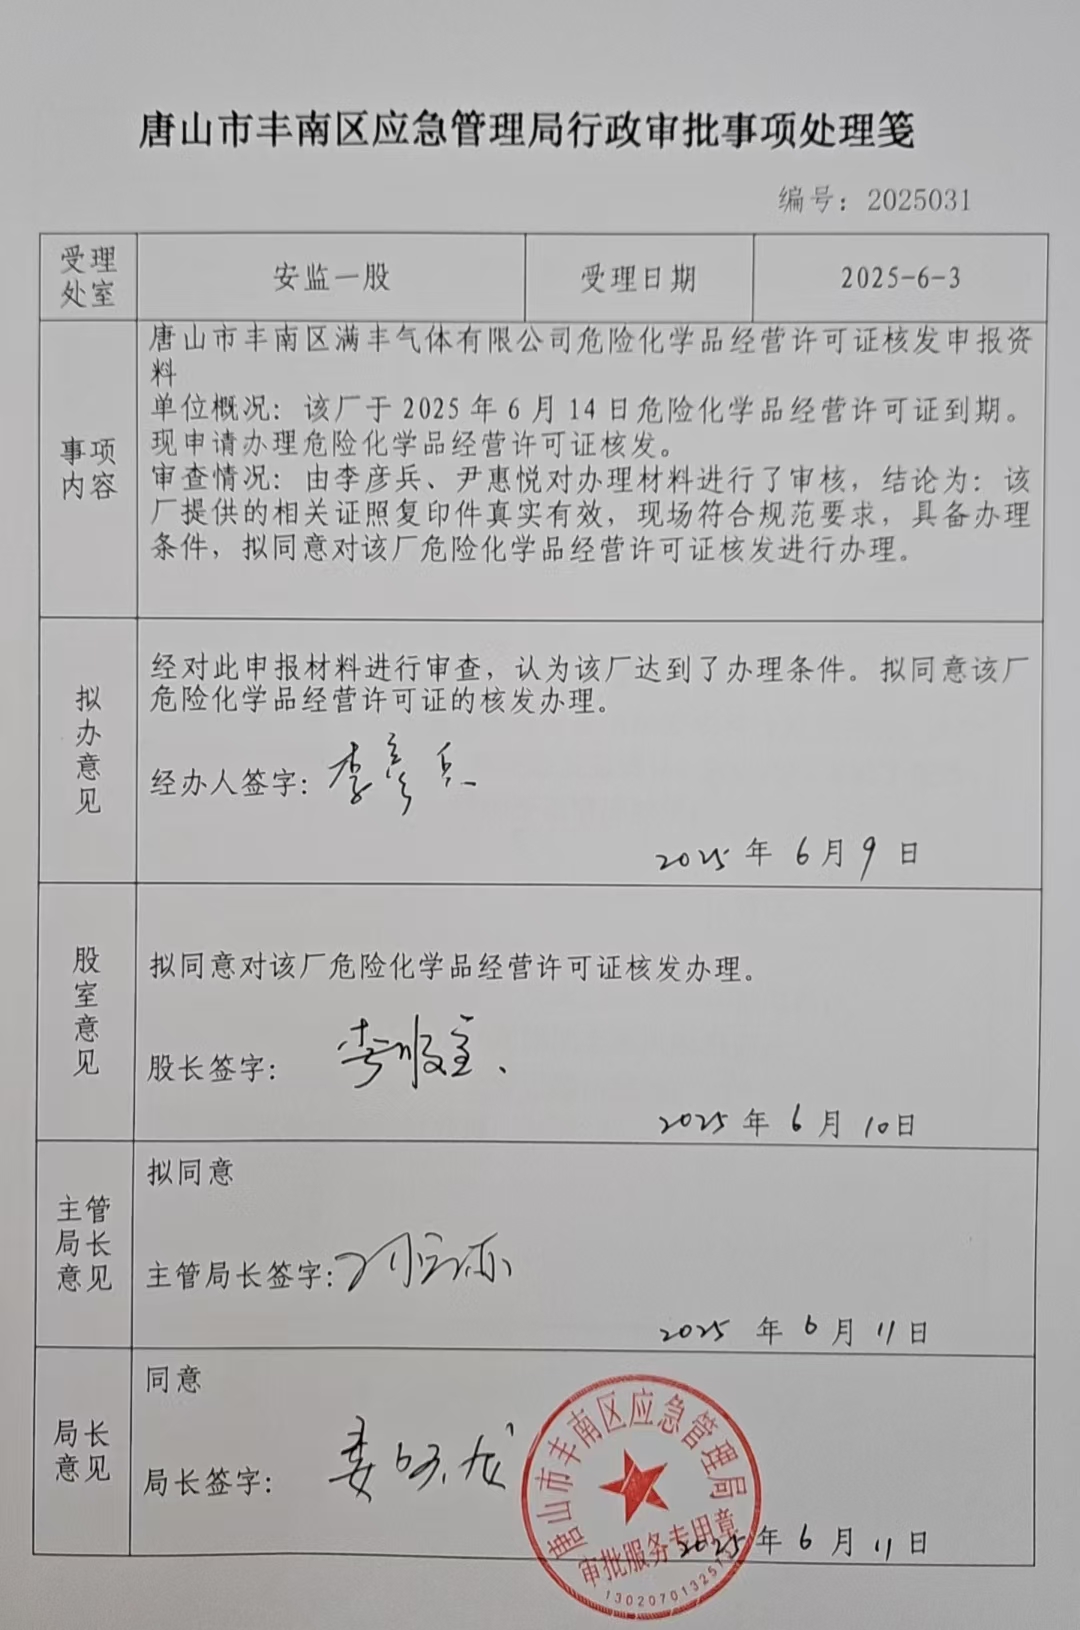 唐山市丰南区应急管理局行政审批事项处理笺
编号：2025031
受理
处室
安监一股
受理日期
2025-6-3
事项
内容
唐山市丰南区满丰气体有限公司危险化学品经营许可证核发申报资
料
单位概况：该厂于2025年6月14日危险化学品经营许可证到期。
现申请办理危险化学品经营许可证核发。
审查情况：由李彦兵、尹惠悦对办理材料进行了审核，结论为：该
厂提供的相关证照复印件真实有效，现场符合规范要求，具备办理
条件，拟同意对该厂危险化学品经营许可证核发进行办理。
拟
办
意
见
经对此申报材料进行审查，认为该厂达到了办理条件。拟同意该厂
危险化学品经营许可证的核发办理。
经办人签字：李彦兵
2025年6月9日
股
室
意
见
拟同意对该厂危险化学品经营许可证核发办理。
股长签字：
2025年6月10日
主管
局长
意见
拟同意
主管局长签字：
2025年6月11日
局长
意见
同意
局长签字：
2025年6月11日
唐山市丰南区应急管理局
审批服务专用章